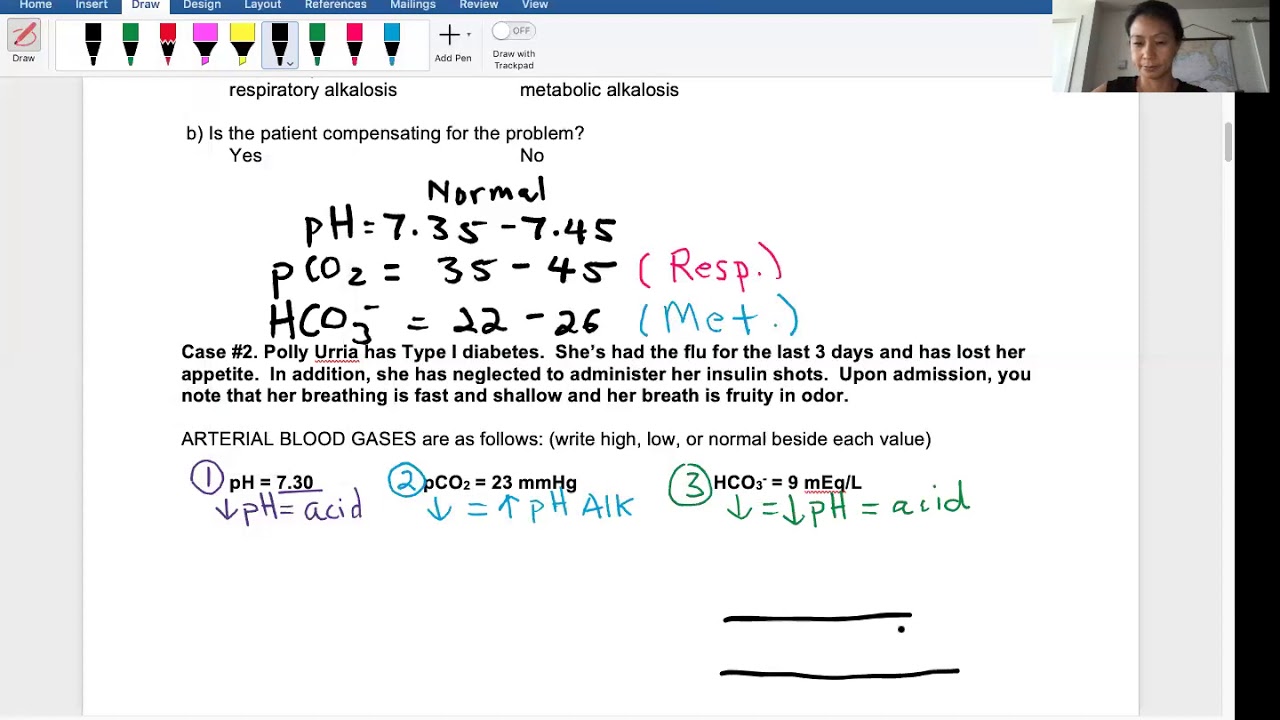 Home Insert Draw Design Layout References Mailings Review View
OFF
Draw Add Pen Draw with
Trackpad
respiratory alkalosis metabolic alkalosis
b) Is the patient compensating for the problem?
Yes No
Normal
pH = 7.35 - 7.45
pCO2 = 35 - 45 (Resp.)
HCO3- = 22 - 26 (Met.)
Case #2. Polly Urria has Type I diabetes. She's had the flu for the last 3 days and has lost her
appetite. In addition, she has neglected to administer her insulin shots. Upon admission, you
note that her breathing is fast and shallow and her breath is fruity in odor.
ARTERIAL BLOOD GASES are as follows: (write high, low, or normal beside each value)
① pH = 7.30 ② pCO₂ = 23 mmHg ③ HCO₃⁻ = 9 mEq/L
↓pH = acid ↓ = ↑ pH Alk ↓ = ↓pH = acid